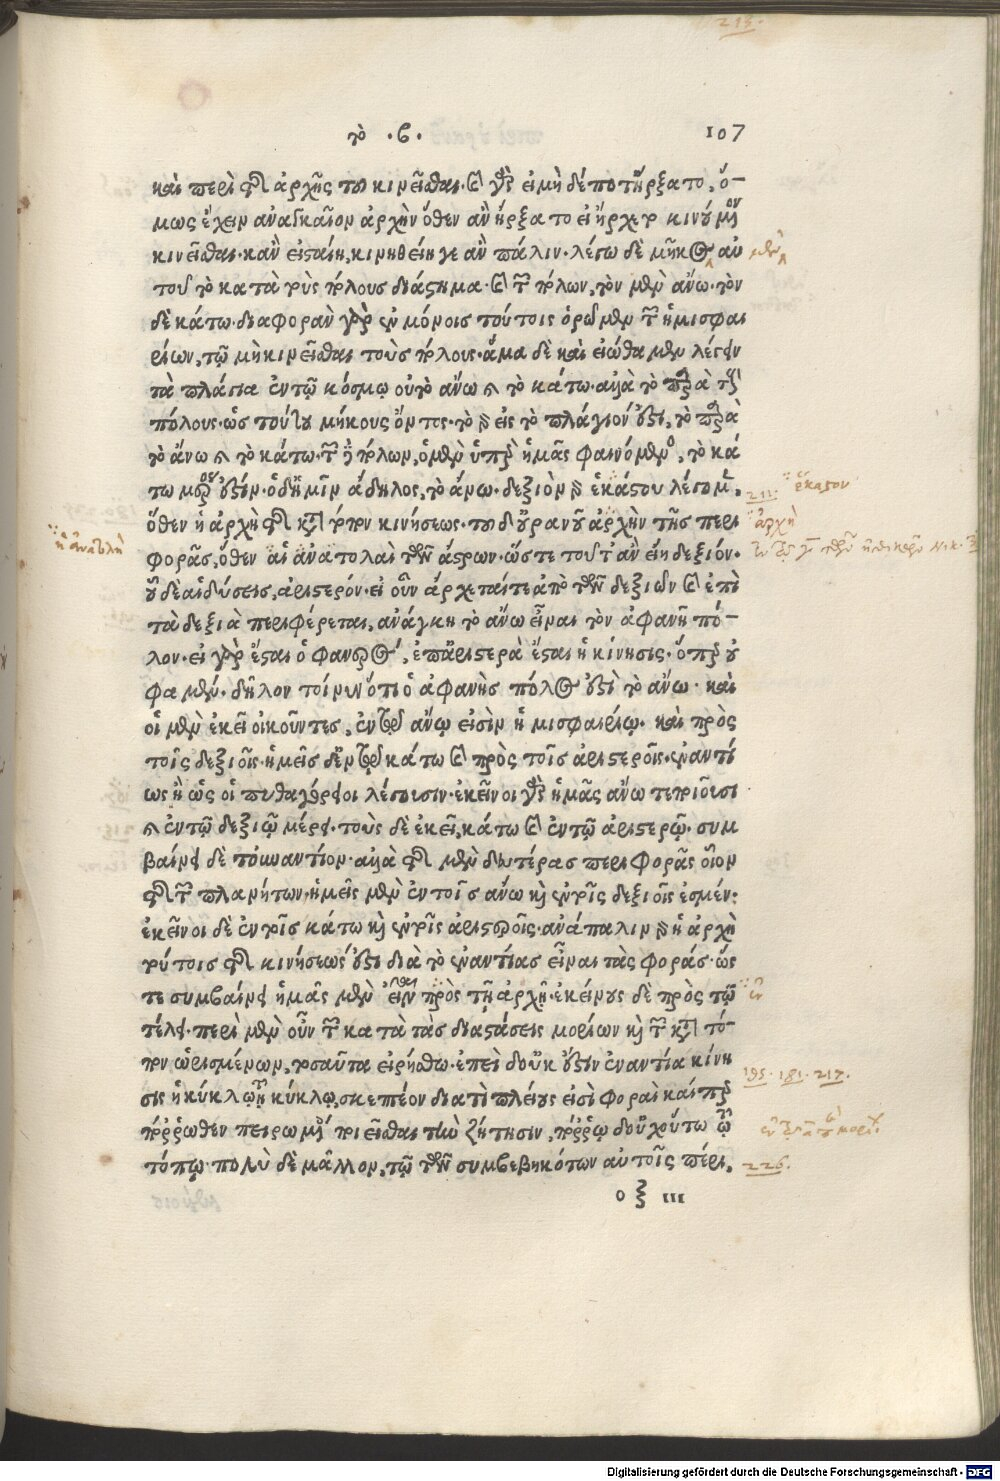 213.
τὸ .β. 107
καὶ περὶ τῆς ἀρχῆς τοῦ κινεῖσθαι. καὶ γὰρ εἰ μὴ δέποτ' ἤρξατο, ὅ-
μως ἔχειν ἀναγκαῖον ἀρχὴν ὅθεν ἂν ἤρξατο εἰ ἤρχετο κινούμενον
κινεῖσθαι. κἂν εἰ σταίη, κινηθείη γε ἂν πάλιν. λέγω δὲ μῆκος αὐ
τοῦ τὸ κατὰ τοὺς πόλους διάστημα. καὶ τῶν πόλων, τὸν μὲν ἄνω. τὸν
δὲ κάτω. διαφορὰν γὰρ ἐν μόνοις τούτοις ὁρῶμεν τῶν ἡμισφαι
ρίων, τῷ μὴ κινεῖσθαι τοὺς πόλους. ἅμα δὲ καὶ εἰώθαμεν λέγειν
τὰ πλάγια ἐν τῷ κόσμῳ οὐ τὸ ἄνω καὶ τὸ κάτω. ἀλλὰ τὸ παρὰ τοὺς
πόλους. ὡς τούτου μήκους ὄντος. τὸ γὰρ εἰς τὸ πλάγιόν ἐστι, τὸ παρὰ
τὸ ἄνω καὶ τὸ κάτω. τῶν δὲ πόλων, ὁ μὲν ὑπὲρ ἡμᾶς φαινόμενος, τὸ κά
τω μέρος ἐστίν. ὁ δ' ἡμῖν ἄδηλος, τὸ ἄνω. δεξιὸν γὰρ ἑκάστου λέγομεν,
ὅθεν ἡ ἀρχὴ τῆς κατὰ τόπον κινήσεως. τοῦ δ' οὐρανοῦ ἀρχὴν τῆς περι
φορᾶς, ὅθεν αἱ ἀνατολαὶ τῶν ἄστρων. ὥστε τοῦτ' ἂν εἴη δεξιόν.
οὗ δὲ αἱ δύσεις, ἀριστερόν. εἰ οὖν ἄρχεταί τε ἀπὸ τῶν δεξιῶν καὶ ἐπὶ
τὰ δεξιὰ περιφέρεται, ἀνάγκη τὸ ἄνω εἶναι τὸν ἀφανῆ πό-
λον. εἰ γὰρ ἔσται ὁ φανερός, ἐπ' ἀριστερὰ ἔσται ἡ κίνησις. ὅπερ οὔ
φαμεν. δῆλον τοίνυν ὅτι ὁ ἀφανὴς πόλος ἐστὶ τὸ ἄνω. καὶ
οἱ μὲν ἐκεῖ οἰκοῦντες, ἐν τῷ ἄνω εἰσὶν ἡμισφαιρίῳ. καὶ πρὸς
τοῖς δεξιοῖς. ἡμεῖς δ' ἐν τῷ κάτω καὶ πρὸς τοῖς ἀριστεροῖς. ἐναντί
ως ἢ ὡς οἱ πυθαγόρειοι λέγουσιν. ἐκεῖνοι γὰρ ἡμᾶς ἄνω τε ποιοῦσι
καὶ ἐν τῷ δεξιῷ μέρει. τοὺς δὲ ἐκεῖ, κάτω καὶ ἐν τῷ ἀριστερῷ. συμ
βαίνει δὲ τοὐναντίον. ἀλλὰ τῆς μὲν δευτέρας περιφορᾶς οἷον
τῆς τῶν πλανήτων. ἡμεῖς μὲν ἐν τοῖς ἄνω καὶ ἐν τοῖς δεξιοῖς ἐσμέν.
ἐκεῖνοι δὲ ἐν τοῖς κάτω καὶ ἐν τοῖς ἀριστεροῖς. ἀνάπαλιν γὰρ ἡ ἀρχὴ
τούτοις τῆς κινήσεώς ἐστι διὰ τὸ ἐναντίας εἶναι τὰς φοράς. ὥς
τε συμβαίνει ἡμᾶς μὲν εἶναι πρὸς τῇ ἀρχῇ. ἐκείνους δὲ πρὸς τῷ
τέλει. περὶ μὲν οὖν τῶν κατὰ τὰς διαστάσεις μορίων καὶ τῶν κατὰ τό-
πον ὡρισμένων, τοσαῦτα εἰρήσθω. ἐπεὶ δ' οὐκ ἔστιν ἐναντία κίνη
σις ἡ κύκλῳ τῇ κύκλῳ, σκεπτέον διατὶ πλείους εἰσὶ φοραὶ καίπερ
πόρρωθεν πειρωμένοις ποιεῖσθαι τὴν ζήτησιν, πόρρω δ' οὐχ οὕτω τῷ
τόπῳ. πολὺ δὲ μᾶλλον, τῷ τῶν συμβεβηκότων αὐτοῖς πέρι.
ο ξ iii
μὲν
211. ἕκαστον
ἀρχὴ
ἡ ἀνατολὴ
195. 181. 217.
226.
Digitalisierung gefördert durch die Deutsche Forschungsgemeinschaft - DFG